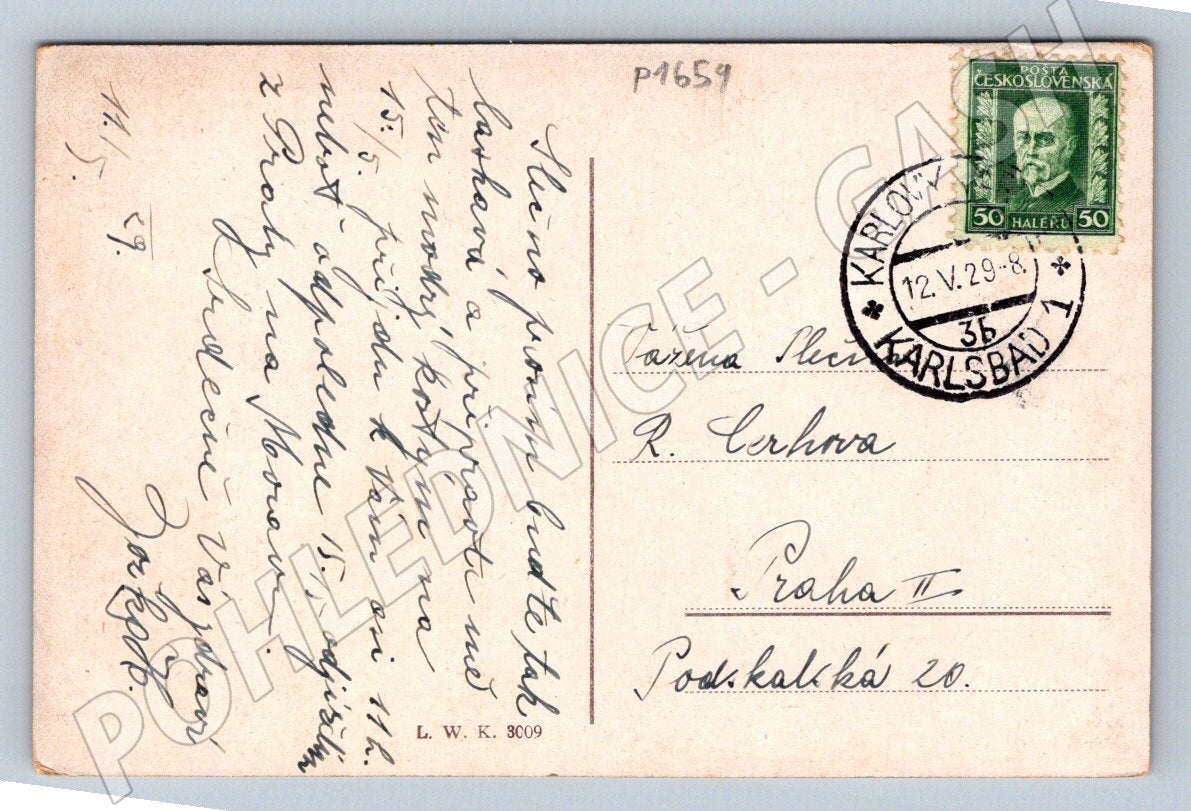 P1659
POŠTA
ČESKOSLOVENSKÁ
50 HALÉŘŮ 50
KARLOVY
12.V.29-8
3b
KARLSBAD 1
Slečno prosím buďte tak
laskavá a připravte mě
ten modrý kostým na
15./5. přijdu k Vám asi 11 h.
neboť odpoledne 15./5. odjíždím
z Prahy na Moravu.
Srdečně Vás zdraví
11./5. 29.
Vážena Slečna
R. Cerhova
Praha II
Podskalská 20.
L. W. K. 3009
POHLEDNICE - GASH